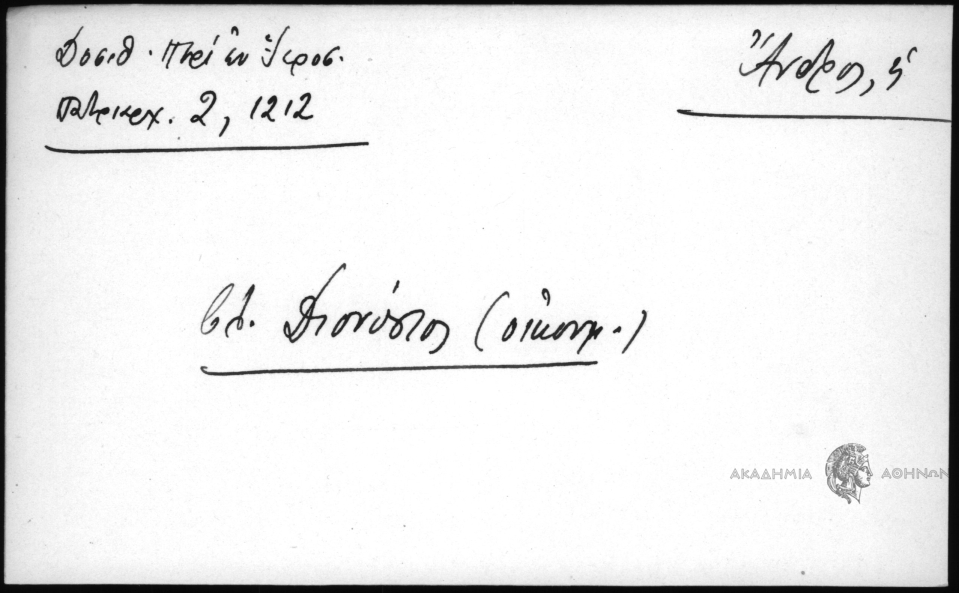 Δοσιθ. Περί ἐν Ἱεροσ.
Πατριαρχ. 2, 1212
Ἄνδρος, ἡ
Διονύσιος (οἰκονομ.)
ΑΚΑΔΗΜΙΑ ΑΘΗΝΩΝ